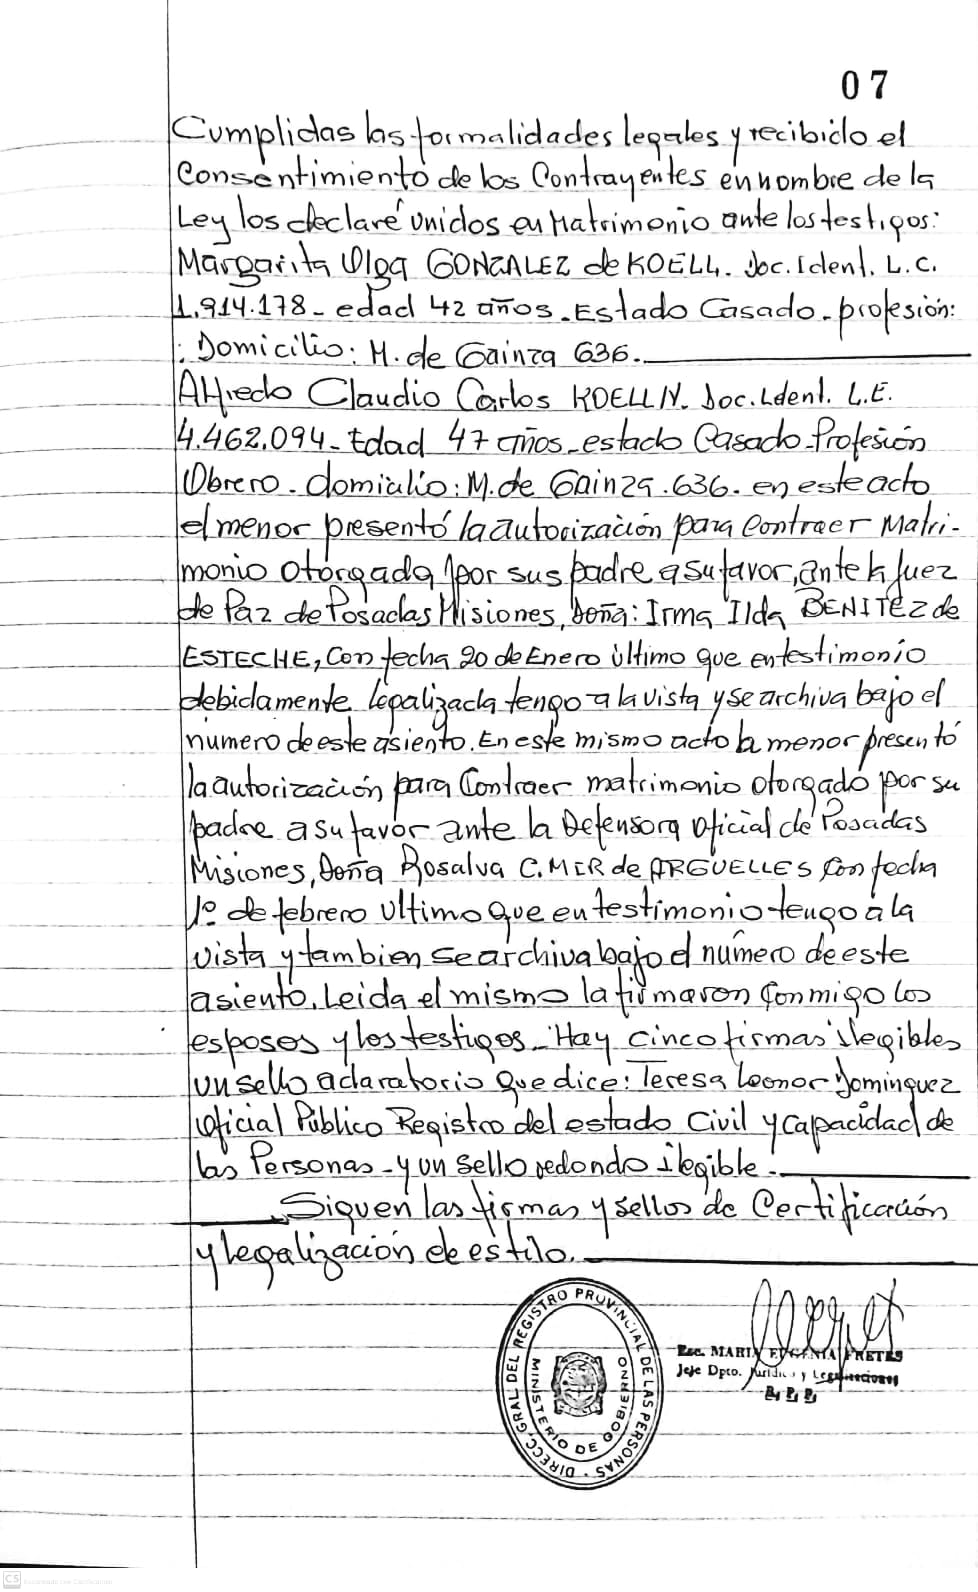 07
Cumplidas las formalidades legales y recibido el
Consentimiento de los Contrayentes en nombre de la
Ley los declaré unidos en Matrimonio ante los testigos:
Margarita Olga GONZALEZ de KOELL. Doc. Ident. L.C.
1.914.178 - edad 42 años - Estado Casado - profesión:
: Domicilio: M. de Gainza 636.
Alfredo Claudio Carlos KOELLN. Doc. Ident. L.E.
4.462.094 - Edad 47 años - estado Casado - Profesión
Obrero - domicilio: M. de Gainza .636. en este acto
el menor presentó la autorización para Contraer Matri-
monio otorgada por sus padre a su favor, ante la Juez
de Paz de Posadas Misiones, doña: Irma Ilda BENITEZ de
ESTECHE, Con fecha 20 de Enero último que en testimonio
debidamente legalizada tengo a la vista y se archiva bajo el
numero de este asiento. En este mismo acto la menor presentó
la autorización para Contraer matrimonio otorgado por su
padre a su favor ante la Defensora Oficial de Posadas
Misiones, Doña Rosalva C. MIR de ARGUELLES Con fecha
1º de febrero Ultimo que en testimonio tengo a la
vista y tambien se archiva bajo el número de este
asiento. Leida el mismo la firmaron Conmigo los
esposos y los testigos - Hay cinco firmas ilegibles
un sello aclaratorio que dice: Teresa Leonor Dominguez
Oficial Público Registro del estado Civil y Capacidad de
las Personas - y un sello redondo ilegible.
Siguen las firmas y sellos de Certificación
y legalización de estilo.
DIRECC. GRAL. DEL REGISTRO PROVINCIAL DE LAS PERSONAS
MINISTERIO DE GOBIERNO
Esc. MARIA EUGENIA FRETES
Jefe Dpto. Jurídico y Legalizaciones
R. P. P.
CS